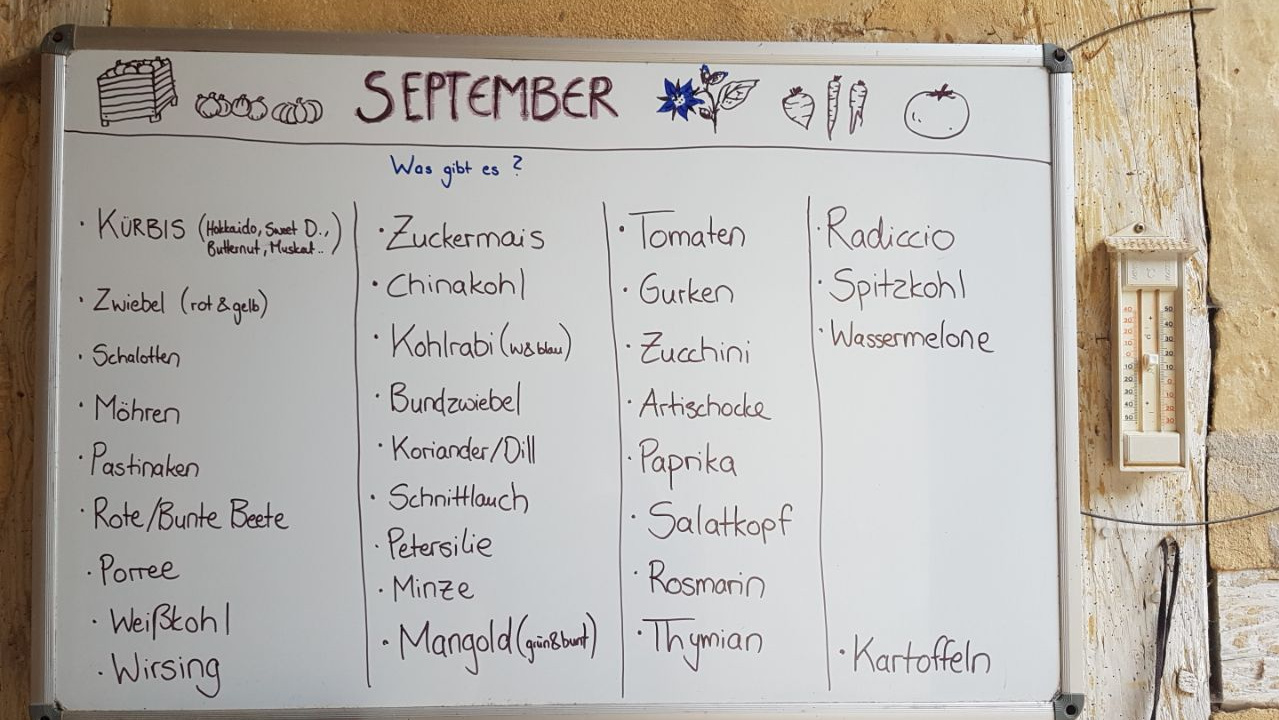 SEPTEMBER
Was gibt es ?
· KÜRBIS (Hokkaido, Sweet D.,
Butternut, Muskat..)
· Zwiebel (rot & gelb)
· Schalotten
· Möhren
· Pastinaken
· Rote/Bunte Beete
· Porree
· Weißkohl
· Wirsing
· Zuckermais
· Chinakohl
· Kohlrabi (w&blau)
· Bundzwiebel
· Koriander/Dill
· Schnittlauch
· Petersilie
· Minze
· Mangold (grün&bunt)
· Tomaten
· Gurken
· Zucchini
· Artischocke
· Paprika
· Salatkopf
· Rosmarin
· Thymian
· Radiccio
· Spitzkohl
· Wassermelone
· Kartoffeln